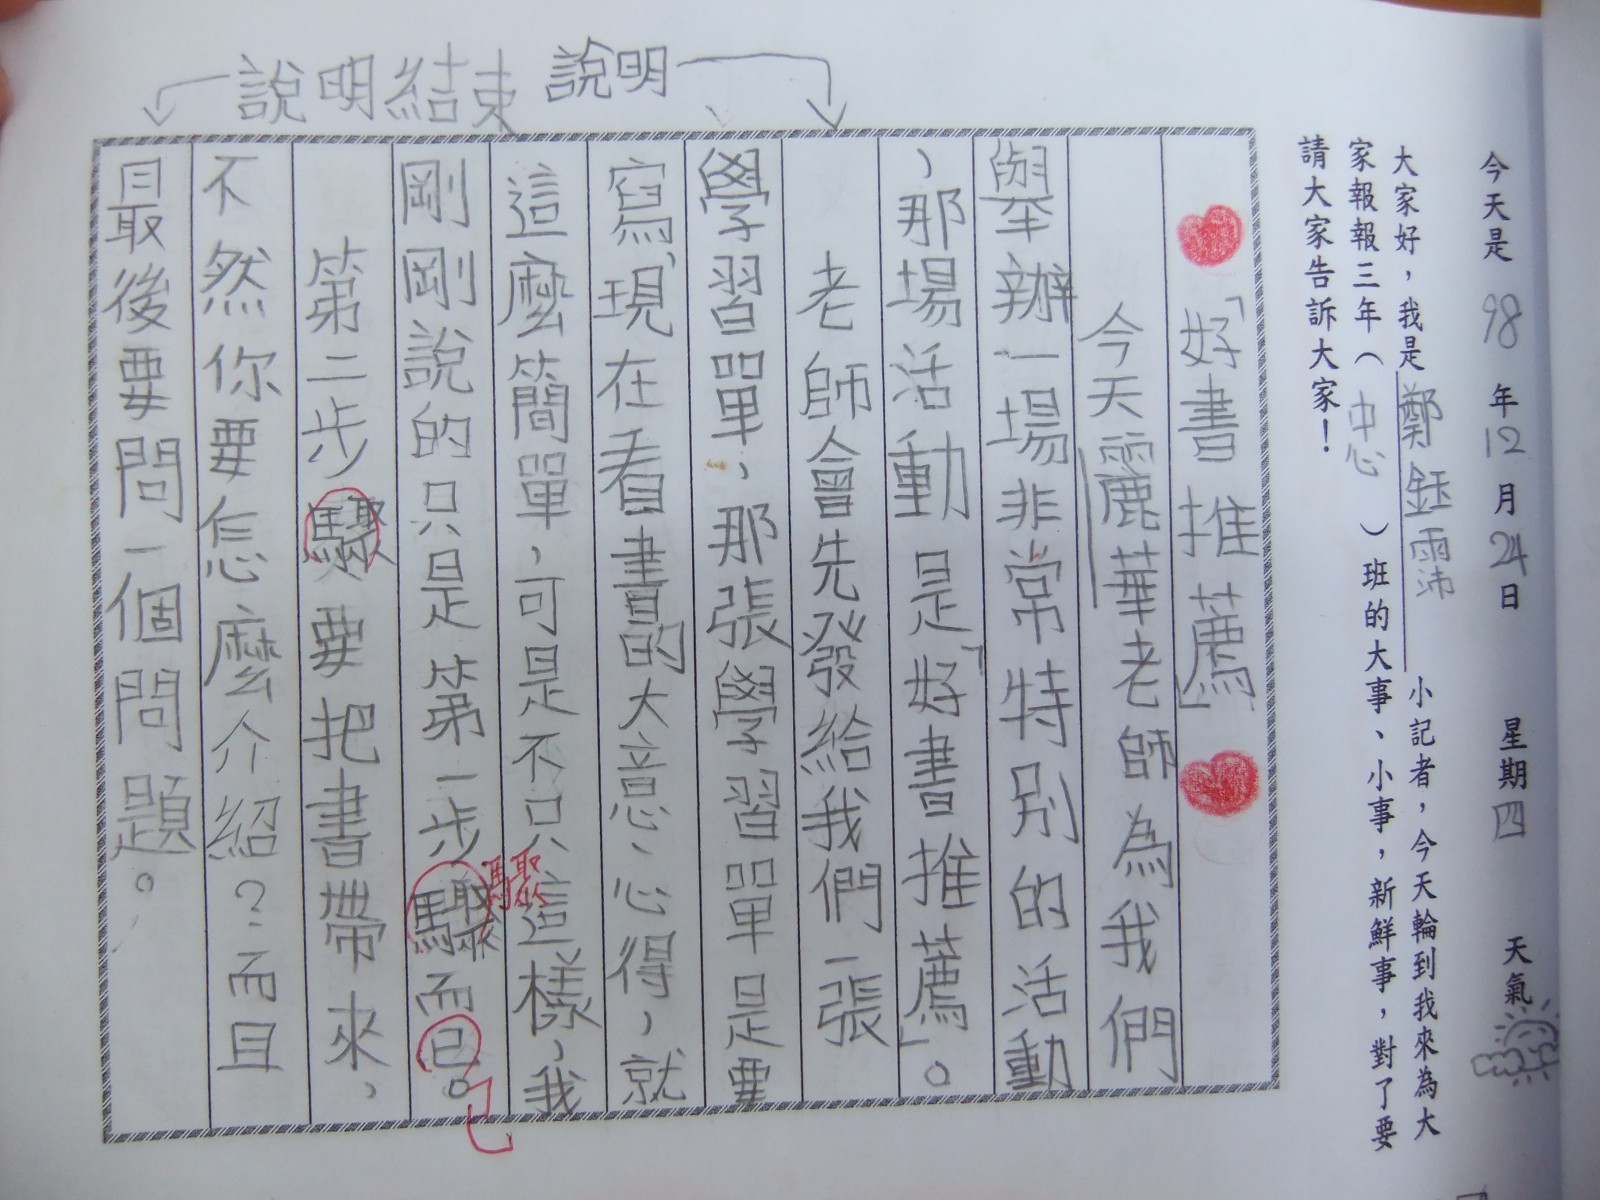 今天是 98 年 12 月 24 日 星期四 天氣
大家好，我是鄭鈺霈小記者，今天輪到我來為大
家報報三年（中心）班的大事、小事，新鮮事，對了要
請大家告訴大家！
說明
說明結束
「好書推薦」
今天麗華老師為我們
舉辦一場非常特別的活動
，那場活動是「好書推薦」。
老師會先發給我們一張
學習單，那張學習單是要
寫、現在看書的大意、心得，就
這麼簡單，可是不只這樣，我
剛剛說的只是第一步驟而已。
驟
第二步驟要把書帶來，
不然你要怎麼介紹？而且
最後要問一個問題。